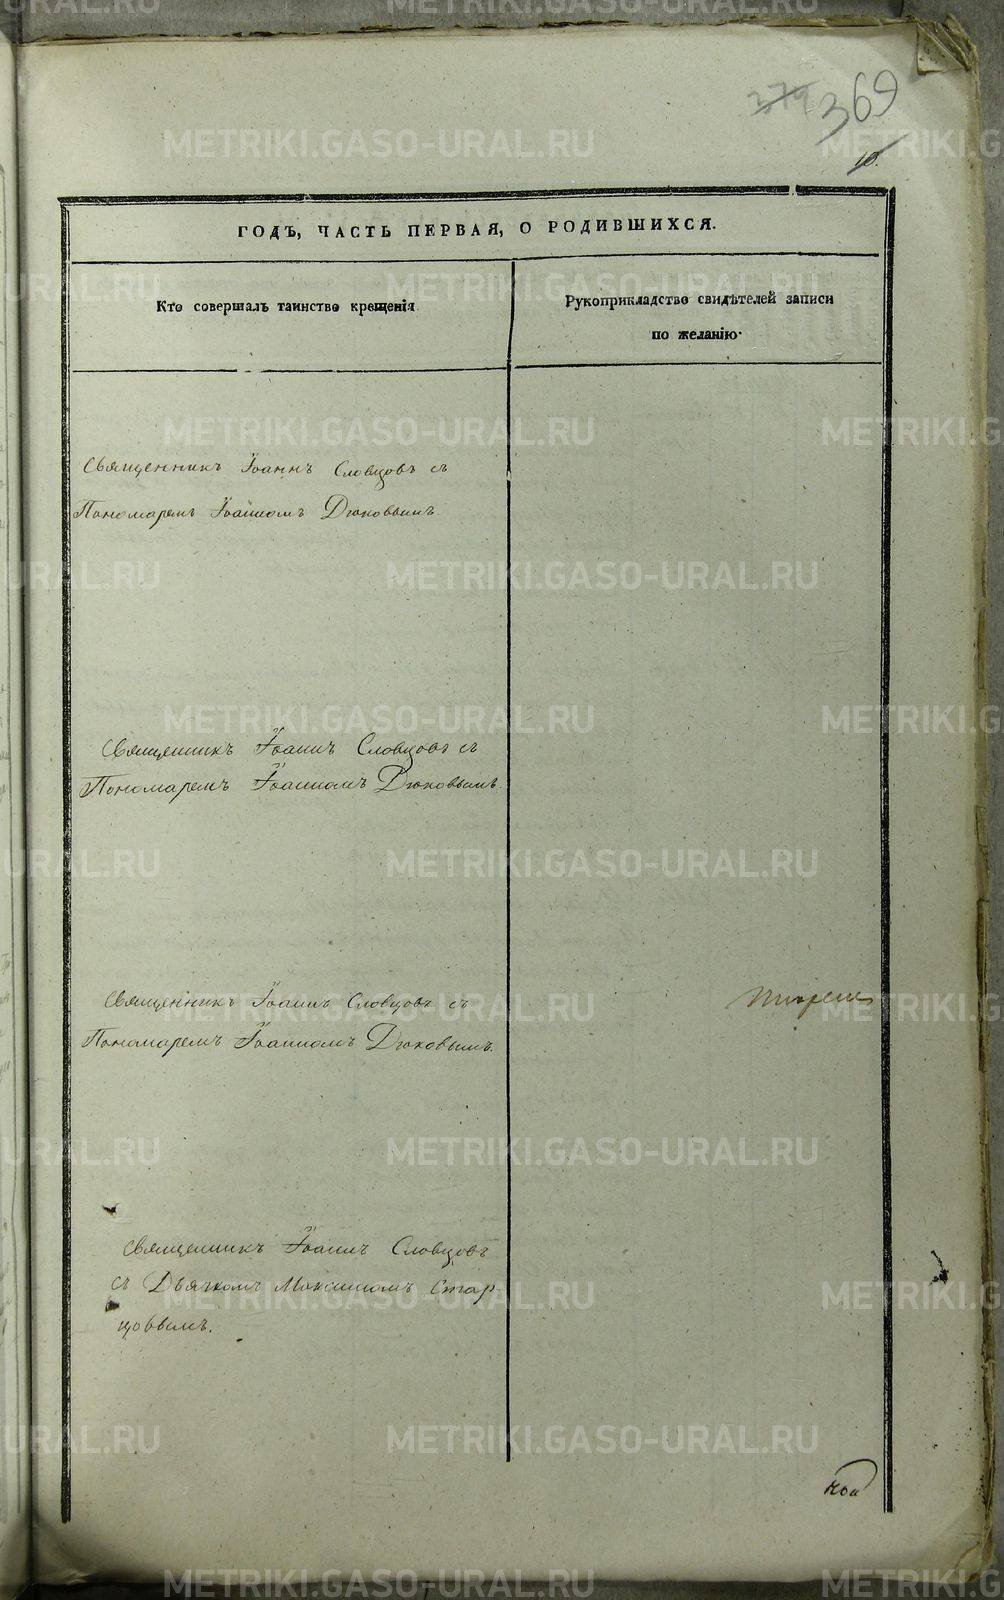 379 369
10.
ГОДЪ, ЧАСТЬ ПЕРВАЯ, О РОДИВШИХСЯ.
Кто совершалъ таинство крещенія
Рукоприкладство свидѣтелей записи
по желанію
Священникъ Іоаннъ Словцовъ съ
Пономаремъ Іоанномъ Дюковымъ.
Священникъ Іоаннъ Словцовъ съ
Пономаремъ Іоанномъ Дюковымъ.
Священникъ Іоаннъ Словцовъ съ
Пономаремъ Іоанномъ Дюковымъ.
Священникъ Іоаннъ Словцовъ
съ Дьячкомъ Максимомъ Стар-
цовымъ.
METRIKI.GASO-URAL.RU